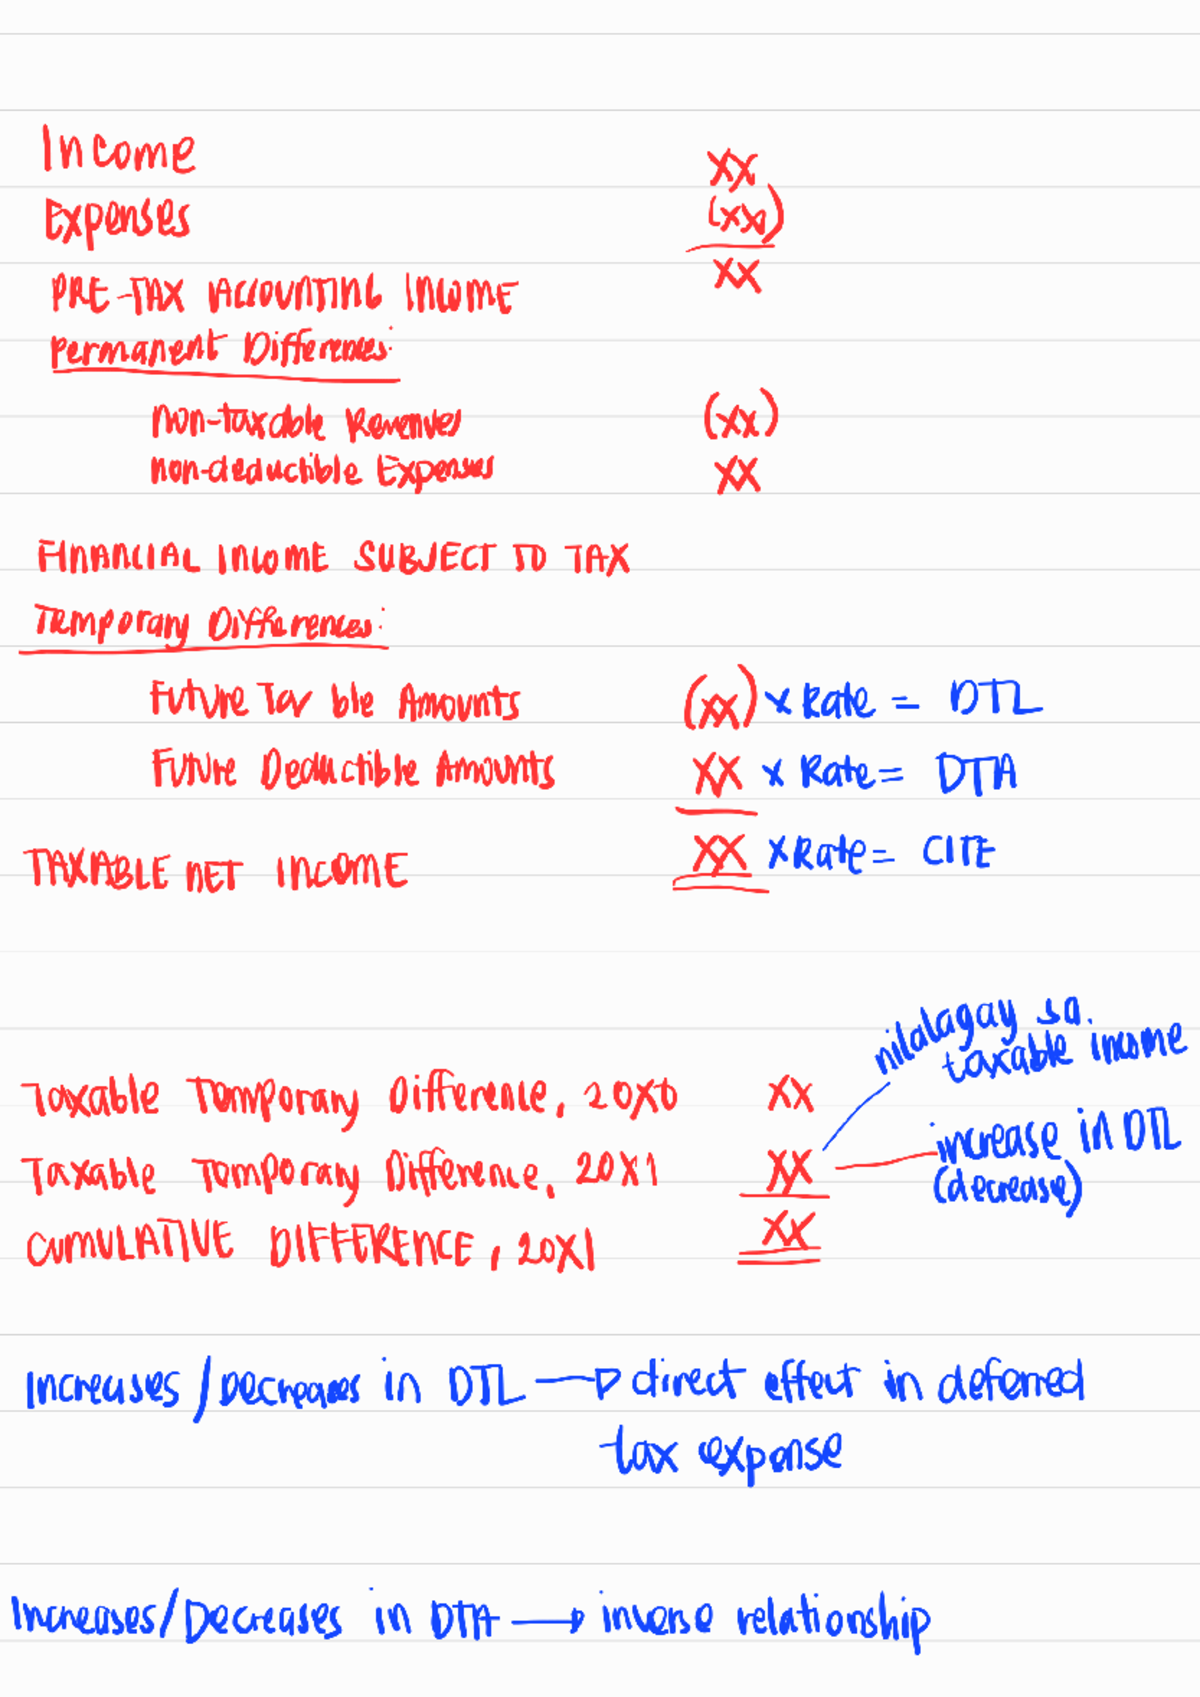 Income XX
Expenses (XX)
PRE-TAX ACCOUNTING INCOME XX
Permanent Differences:
Non-taxable Revenues (XX)
non-deductible Expenses XX
FINANCIAL INCOME SUBJECT TO TAX
Temporary Differences:
Future Tax ble Amounts (XX) x Rate = DTL
Future Deductible Amounts XX x Rate = DTA
TAXABLE NET INCOME XX x Rate = CITE
nilalagay sa.
taxable income
Taxable Temporary Difference, 20X0 XX
Taxable Temporary Difference, 20X1 XX increase in DTL
(decrease)
CUMULATIVE DIFFERENCE, 20X1 XX
Increases/Decreases in DTL → direct effect in deferred
tax expense
Increases/Decreases in DTA → inverse relationship